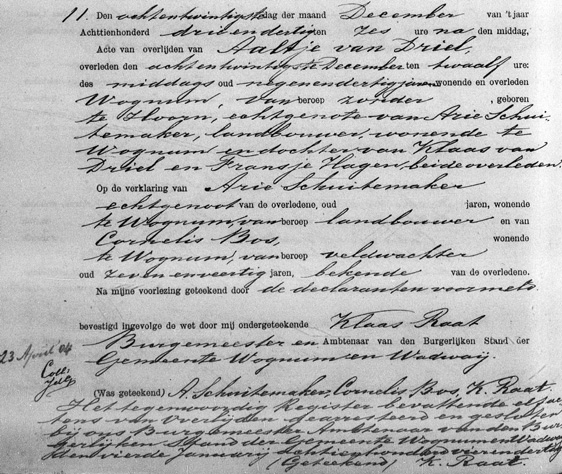 11. Den achtentwintigste dag der maand December van 't jaar
Achttienhonderd drieëndertig en zes ure na den middag,
Acte van overlijden van Aaltje van Driel,
overleden den achtentwintigste December ten twaalf ure:
des middags oud negenendertig jaren wonende en overleden
Wognum, van beroep zonder, geboren
te Hoorn, echtgenote van Arie Schui-
temaker, landbouwer, wonende te
Wognum en dochter van Klaas van
Driel en Fransje Hagen, beide overleden.
Op de verklaring van Arie Schuitemaker
echtgenoot van de overledene, oud jaren, wonende
te Wognum, van beroep landbouwer en van
Cornelis Bos, wonende
te Wognum, van beroep veldwachter
oud zeven en veertig jaren, bekende van de overledene.
Na mijne voorlezing geteekend door de declaranten voormeld.
bevestigd ingevolge de wet door mij ondergeteekende Klaas Raat
Burgemeester en Ambtenaar van den Burgerlijken Stand der
Gemeente Wognum en Wadway.
23 April 04
Coll:
(Was geteekend) A. Schuitemaker, Cornelis Bos, K. Raat.
Het tegenwoordig Register bevattende elf ac-
tens van Overlijden gearresteerd en gesloten
bij ons Burgemeester Ambtenaar van den Bur-
gerlijken Stand der Gemeente Wognum Wadway
den vierde Januarij achttienhonderd vierendertig
(Geteekend) K. Raat.